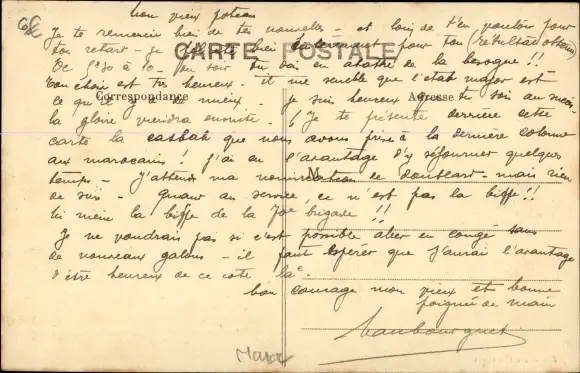 6€
mon vieux poteau
Je te remercie bien de tes nouvelles - et loin de t'en vouloir pour
ton retard - je félicite bien pour ton (résultat obtenu)
CARTE POSTALE
De 8h30 à 10h du soir tu dois en abattre de la besogne !!
Ton choix est très heureux - il me semble que l'état major est
ce qu'il y a de mieux - je suis heureux que tu sois au
Correspondance
Adresse
la gloire viendra ensuite - Je te présente derrière cette
carte la casbah que nous avons prise à la dernière colonne
aux marocains ! j'ai eu l'avantage d'y séjourner quelques
temps - J'attends ma nomination de - mais rien
M
de sûr - Quant au service, ce n'est pas la biffe !!
ni même la biffe de la brigade !!
Je ne voudrais pas si c'est possible aller en congé sans
de nouveaux galons - il faut espérer que j'aurai l'avantage
d'être heureux de ce côté là
bon courage mon vieux et bonne
poignée de main
Maroc